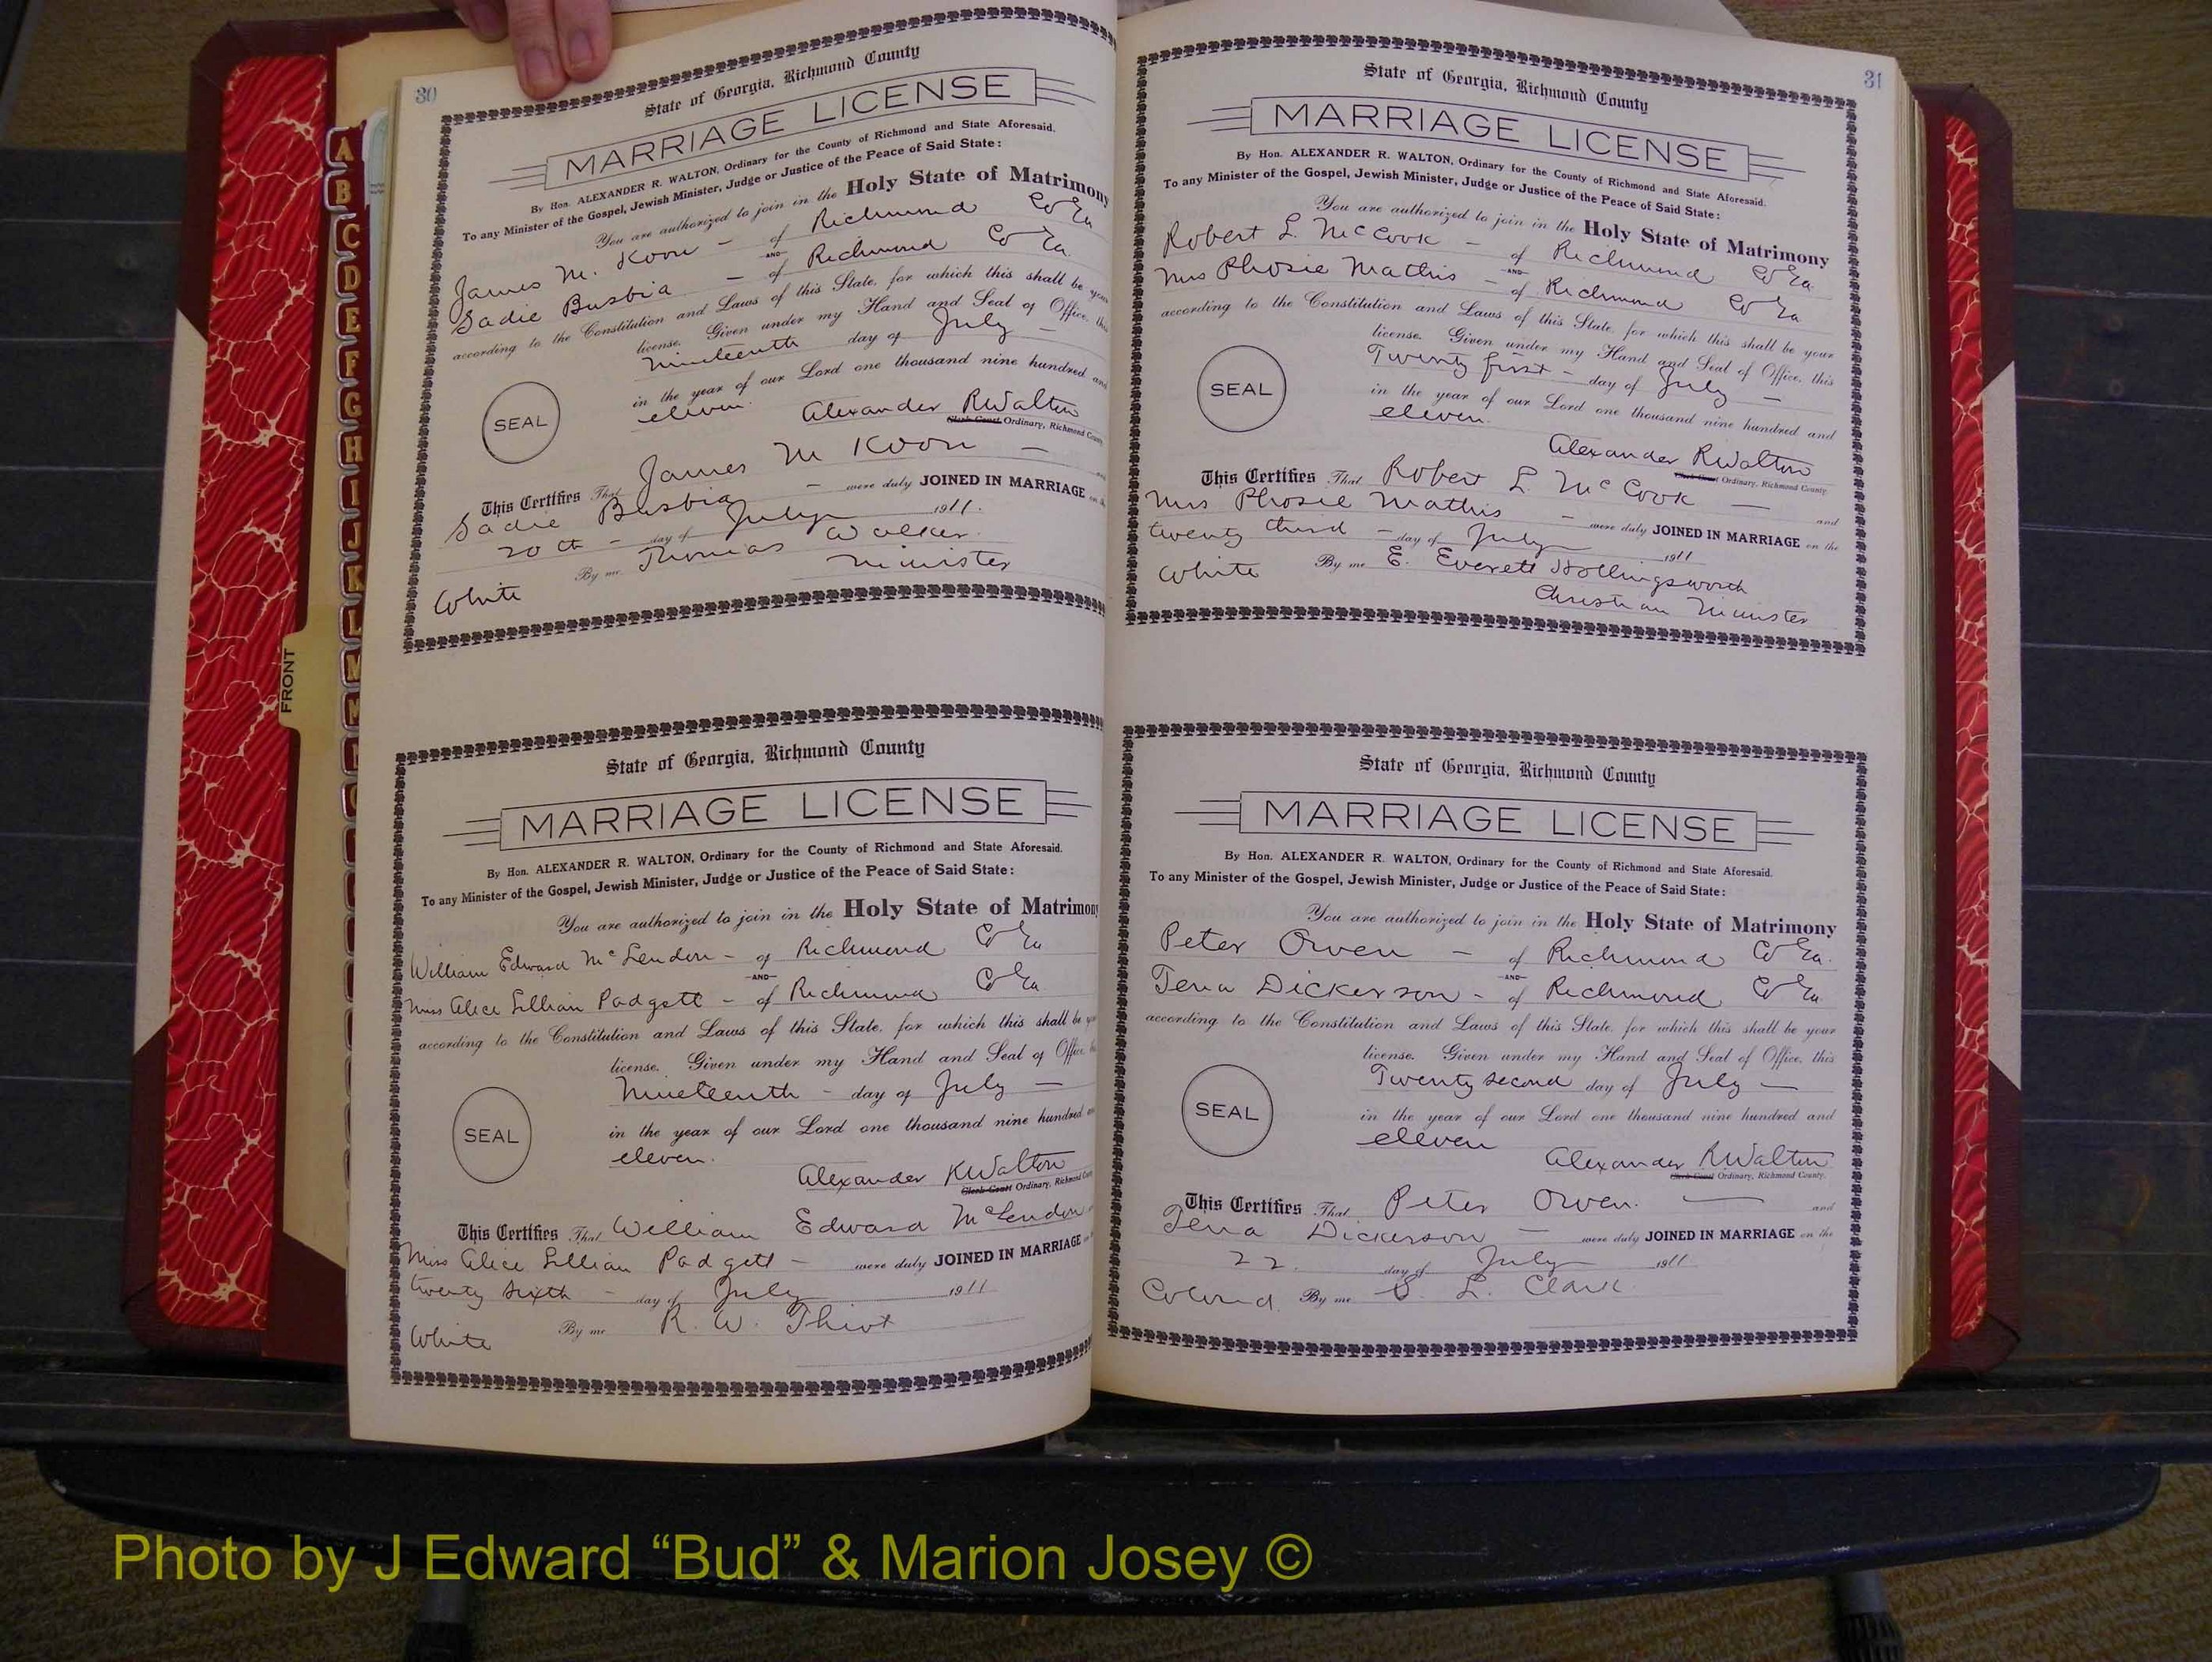 30
State of Georgia, Richmond County
MARRIAGE LICENSE
By Hon. ALEXANDER R. WALTON, Ordinary for the County of Richmond and State Aforesaid.
To any Minister of the Gospel, Jewish Minister, Judge or Justice of the Peace of Said State:
You are authorized to join in the Holy State of Matrimony
James M. Koon - of Richmond Co Ga
AND
Sadie Busbia - of Richmond Co Ga.
according to the Constitution and Laws of this State, for which this shall be your
license. Given under my Hand and Seal of Office, this
nineteenth day of July -
in the year of our Lord one thousand nine hundred and
eleven.
SEAL
Alexander R Walton
Clerk Court Ordinary, Richmond County
This Certifies That James M Koon -
Sadie Busbia - were duly JOINED IN MARRIAGE on the
20th - day of July 1911.
By me Thomas Walker.
White Minister
State of Georgia, Richmond County
MARRIAGE LICENSE
By Hon. ALEXANDER R. WALTON, Ordinary for the County of Richmond and State Aforesaid.
To any Minister of the Gospel, Jewish Minister, Judge or Justice of the Peace of Said State:
You are authorized to join in the Holy State of Matrimony
William Edward McLendon - of Richmond Co Ga
AND
Miss Alice Lillian Padgett - of Richmond Co Ga
according to the Constitution and Laws of this State, for which this shall be your
license. Given under my Hand and Seal of Office
Nineteenth - day of July -
in the year of our Lord one thousand nine hundred and
eleven.
SEAL
Alexander R Walton
Clerk Court Ordinary, Richmond County
This Certifies That William Edward McLendon
Miss Alice Lillian Padgett - were duly JOINED IN MARRIAGE
twenty sixth - day of July 1911
White By me R. W. Thiot
31
State of Georgia, Richmond County
MARRIAGE LICENSE
By Hon. ALEXANDER R. WALTON, Ordinary for the County of Richmond and State Aforesaid.
To any Minister of the Gospel, Jewish Minister, Judge or Justice of the Peace of Said State:
You are authorized to join in the Holy State of Matrimony
Robert L. McCook - of Richmond Co Ga
AND
Mrs Phosie Mathis - of Richmond Co Ga
according to the Constitution and Laws of this State, for which this shall be your
license. Given under my Hand and Seal of Office, this
Twenty first - day of July -
in the year of our Lord one thousand nine hundred and
eleven.
SEAL
Alexander R Walton
Clerk Court Ordinary, Richmond County
This Certifies That Robert L McCook - and
Mrs Phosie Mathis - were duly JOINED IN MARRIAGE on the
twenty third - day of July 1911
White By me E. Everett Hollingsworth
Christian Minister
State of Georgia, Richmond County
MARRIAGE LICENSE
By Hon. ALEXANDER R. WALTON, Ordinary for the County of Richmond and State Aforesaid.
To any Minister of the Gospel, Jewish Minister, Judge or Justice of the Peace of Said State:
You are authorized to join in the Holy State of Matrimony
Peter Owen - of Richmond Co Ga.
AND
Tena Dickerson - of Richmond Co Ga
according to the Constitution and Laws of this State, for which this shall be your
license. Given under my Hand and Seal of Office, this
Twenty second day of July -
in the year of our Lord one thousand nine hundred and
eleven
SEAL
Alexander R Walton
Clerk Court Ordinary, Richmond County.
This Certifies That Peter Owen. - and
Tena Dickerson - were duly JOINED IN MARRIAGE on the
22. day of July 1911
Colored. By me S. L. Clark.
A
B
C
D
E
F
G
H
I
J
K
L
M
FRONT
Photo by J Edward “Bud” & Marion Josey ©